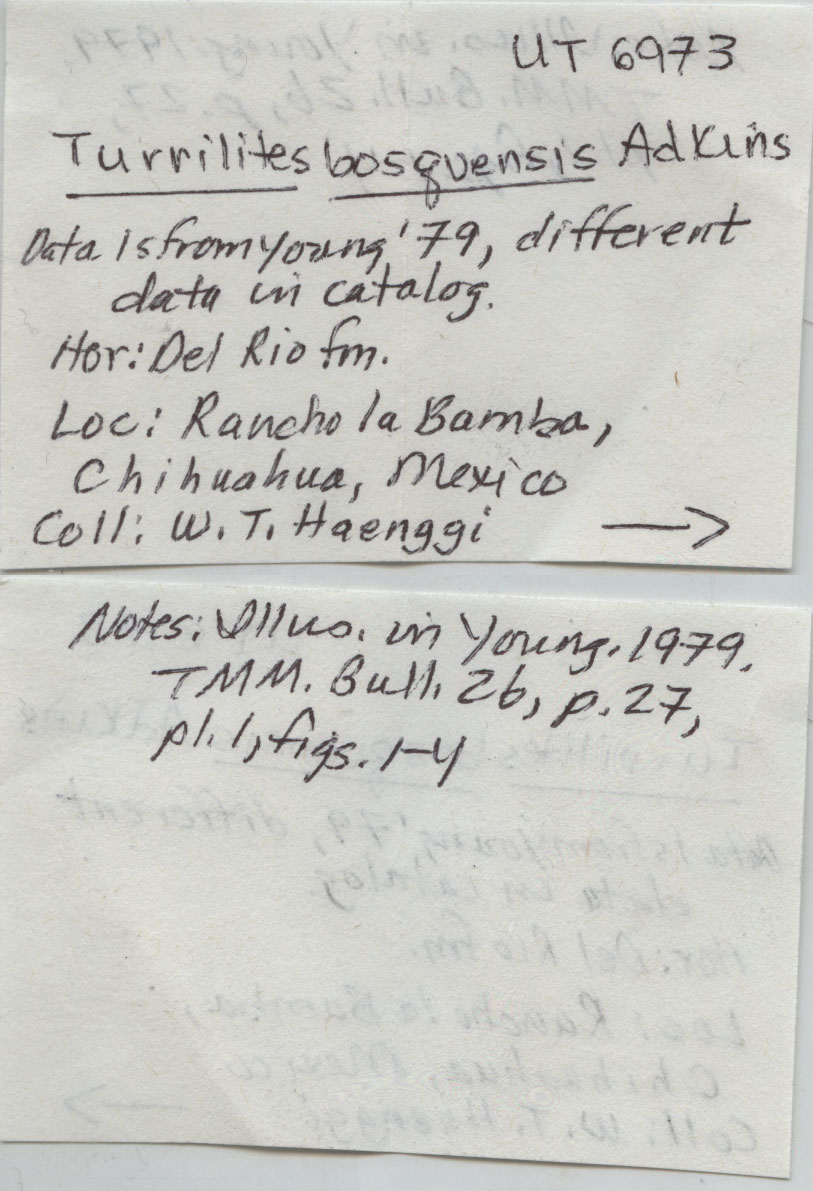 UT 6973
Turrilites bosquensis Adkins
Data is from Young '79, different
data in catalog.
Hor: Del Rio fm.
Loc: Rancho la Bamba,
Chihuahua, Mexico
Coll: W. T. Haenggi →
Notes: Illus. in Young. 1979.
TMM. Bull. 26, p. 27,
pl. 1, figs. 1-4